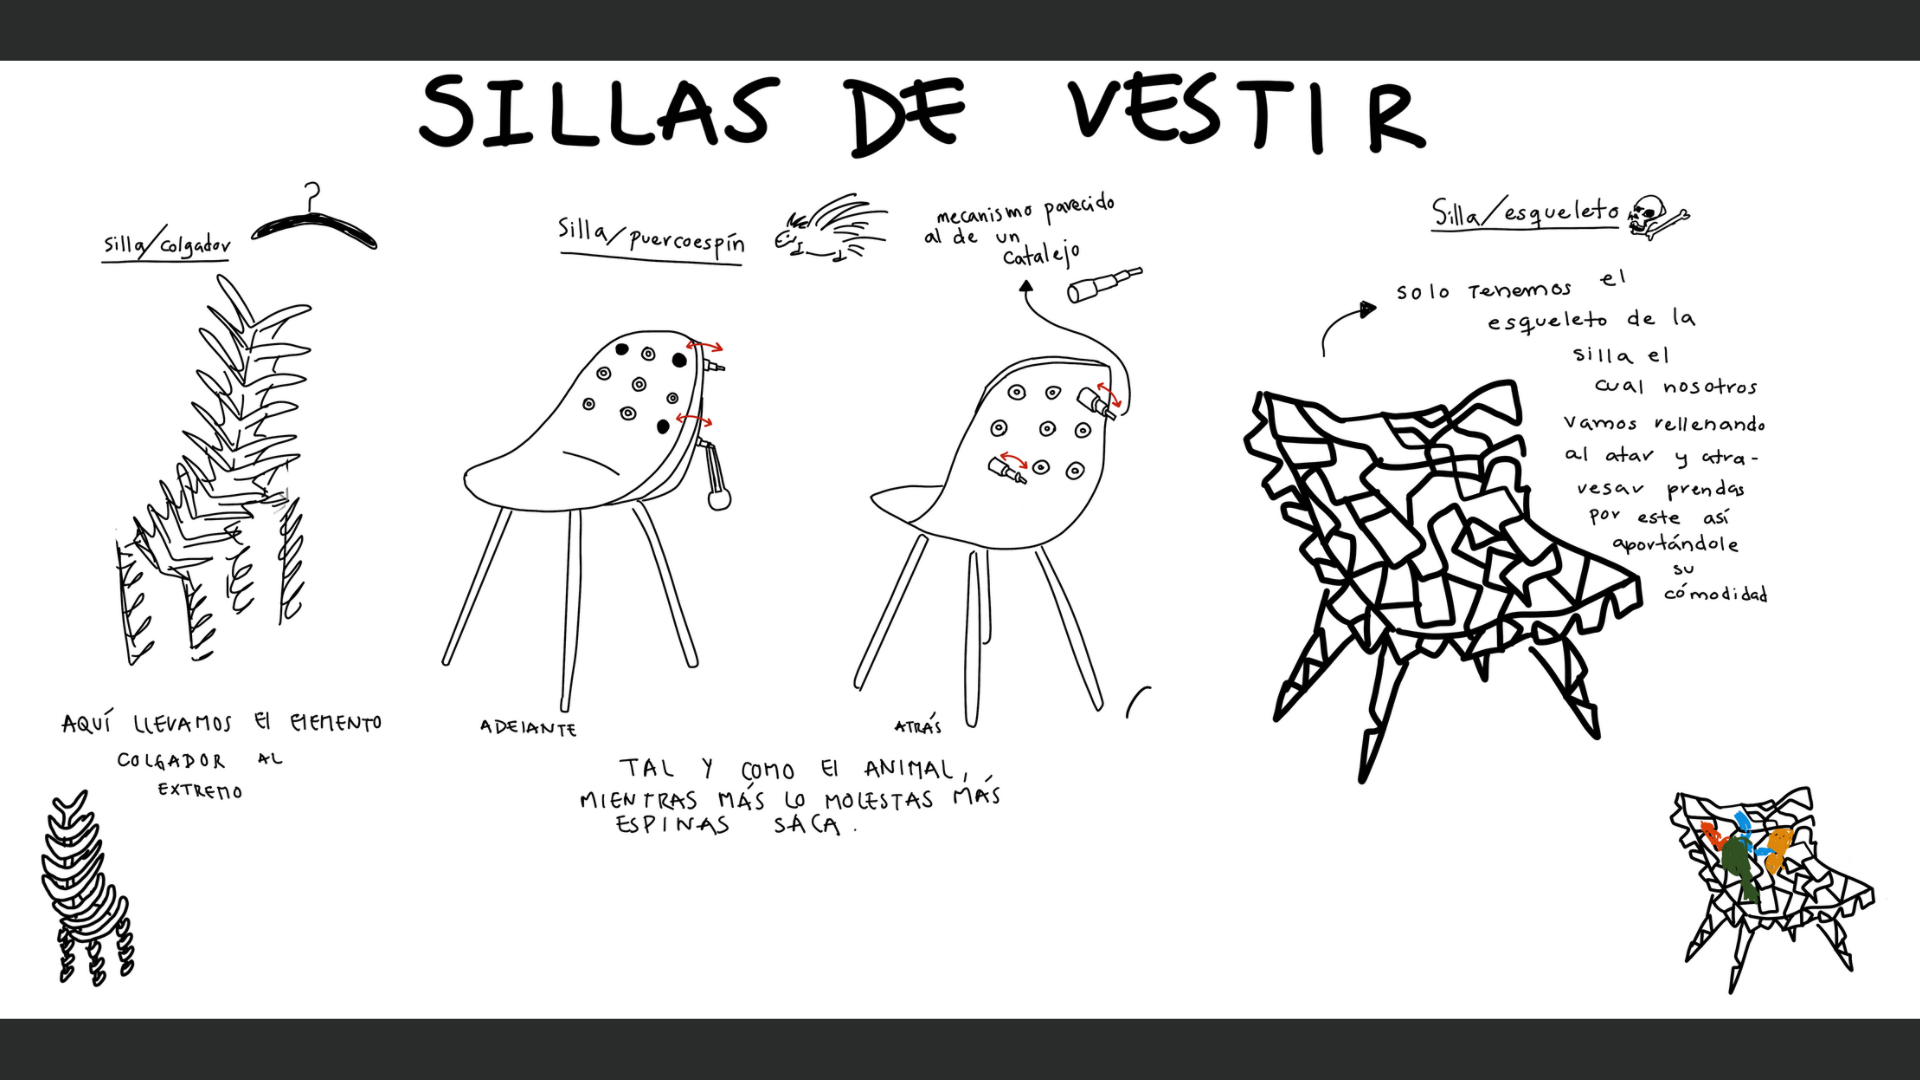 SILLAS DE VESTIR
Silla/colgador
AQUÍ LLEVAMOS El ElEMENTO
COLGADOR AL
EXTREMO
Silla/puercoespín
mecanismo parecido
al de un
Catalejo
ADElANTE
ATRÁS
TAL Y COMO El ANIMAL,
MIENTRAS MÁS LO MOLESTAS MÁS
ESPINAS SACA.
Silla/esqueleto
solo Tenemos el
esqueleto de la
silla el
cual nosotros
vamos rellenando
al atar y atra-
vesar prendas
por este así
aportándole
su
cómodidad